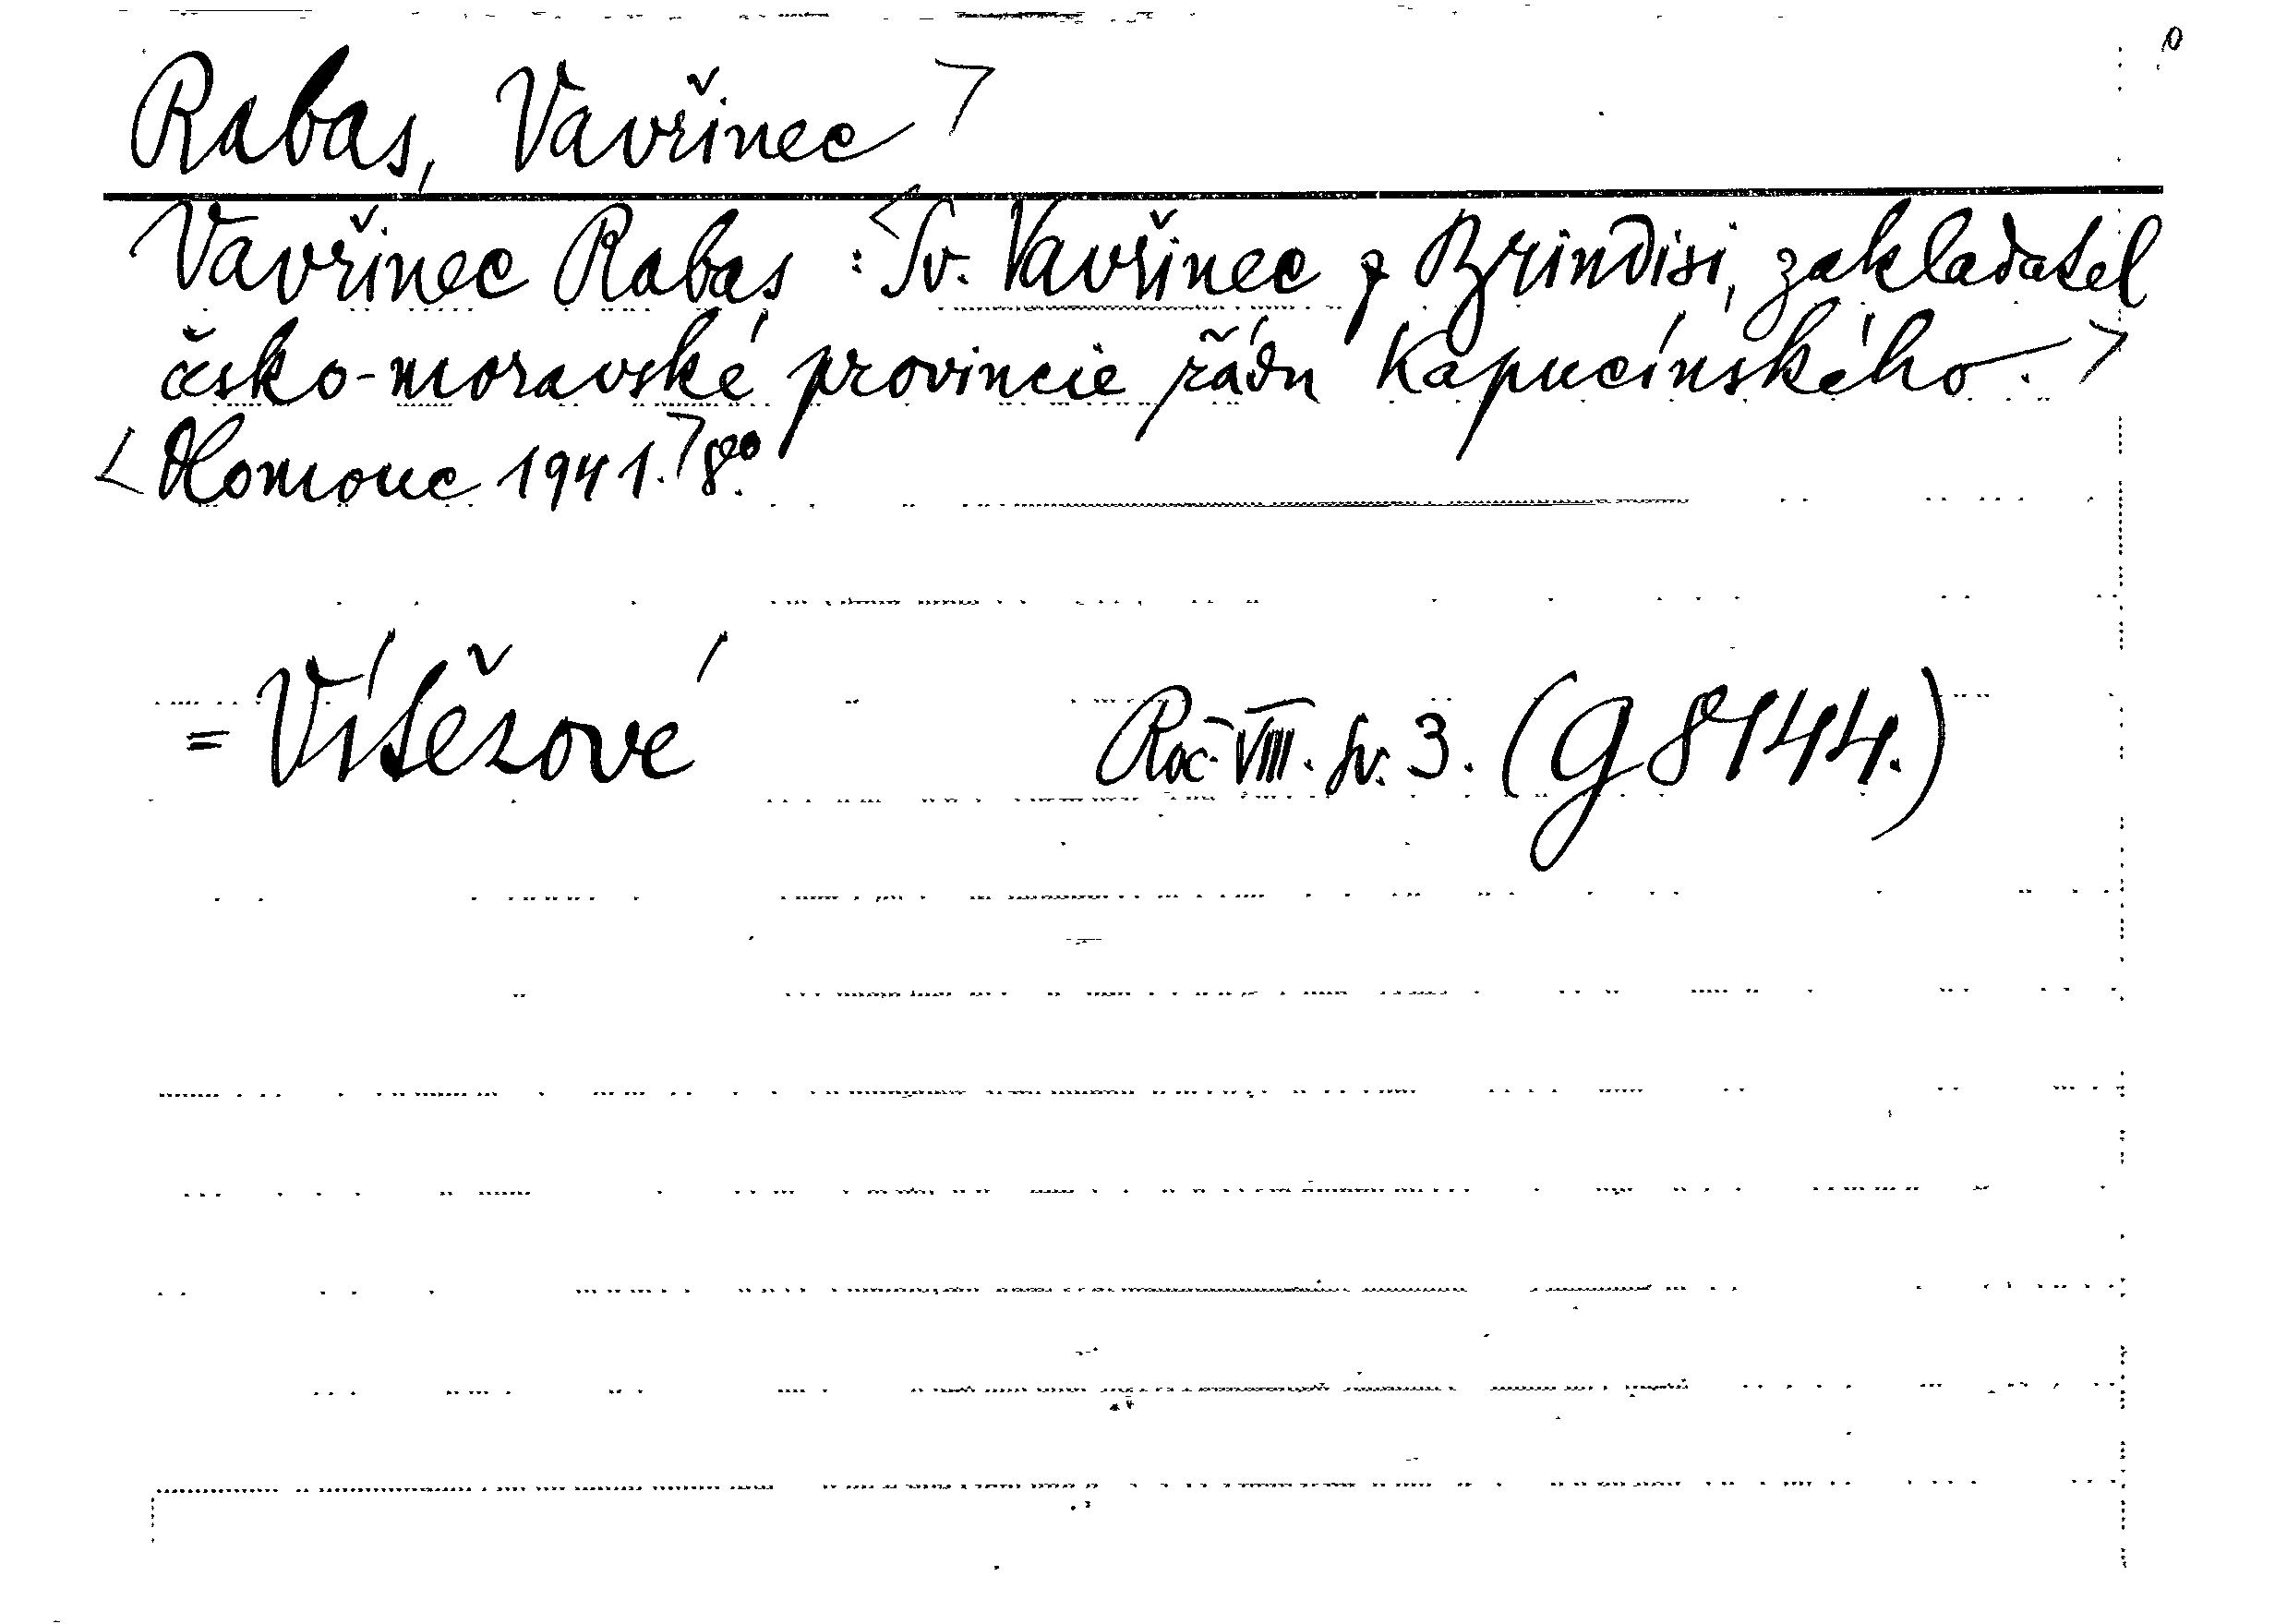 Rabas, Vavřinec
Vavřinec Rabas : Sv. Vavřinec z Brindisi, zakladatel
česko-moravské provincie řádu Kapucínského.
Olomouc 1941. 8°.
= Vítězové Roč. VIII. sv. 3. (G 8144.)